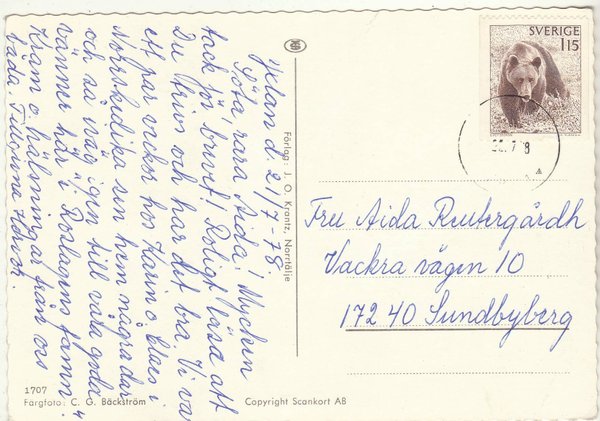 Jelan d. 21/7-78
Söta, rara Aida! Mycken
tack för brevet! Roligt läsa att
Du trivs och har det bra. Vi va
ett par veckor hos Karin o. Claes i
Norrskedika sen hem några dar
och så iväg igen till våra goda
vänner här i "Roslagens famn".
Kram o. hälsningar från oss
båda. Tillgivne
Förlag: J. O. Krantz, Norrtälje
1707
Färgfoto: C. G. Bäckström
Copyright Scankort AB
SVERIGE
115
7 8
Fru Aida Reutergårdh
Vackra vägen 10
172 40 Sundbyberg